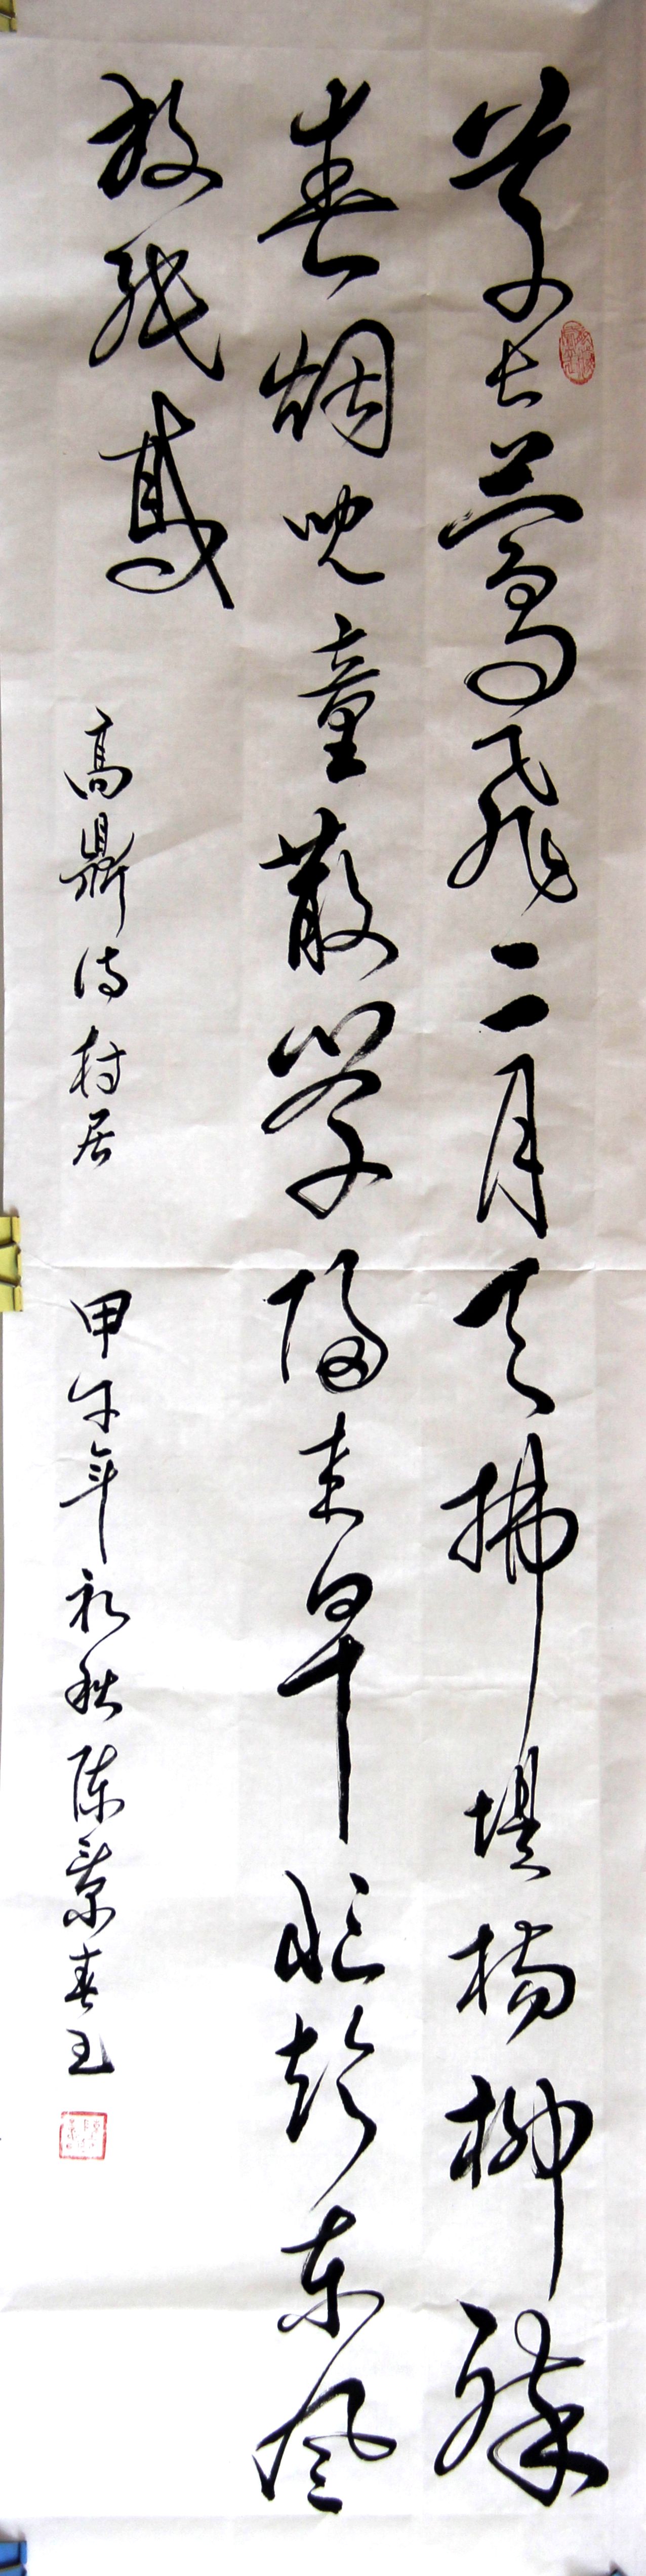 草长莺飞二月天拂堤杨柳醉
春烟儿童散学归来早忙趁东风
放纸鸢
高鼎诗村居 甲午年初秋陈景春书